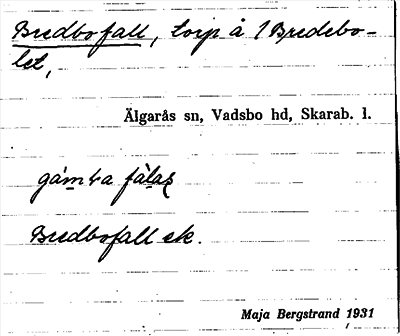 Bredbofall, torp å 1 Bredebo-
let,
Älgarås sn, Vadsbo hd, Skarab. l.
gám̲ɩa fàlaʒ
Bredbofall ek.
Maja Bergstrand 1931